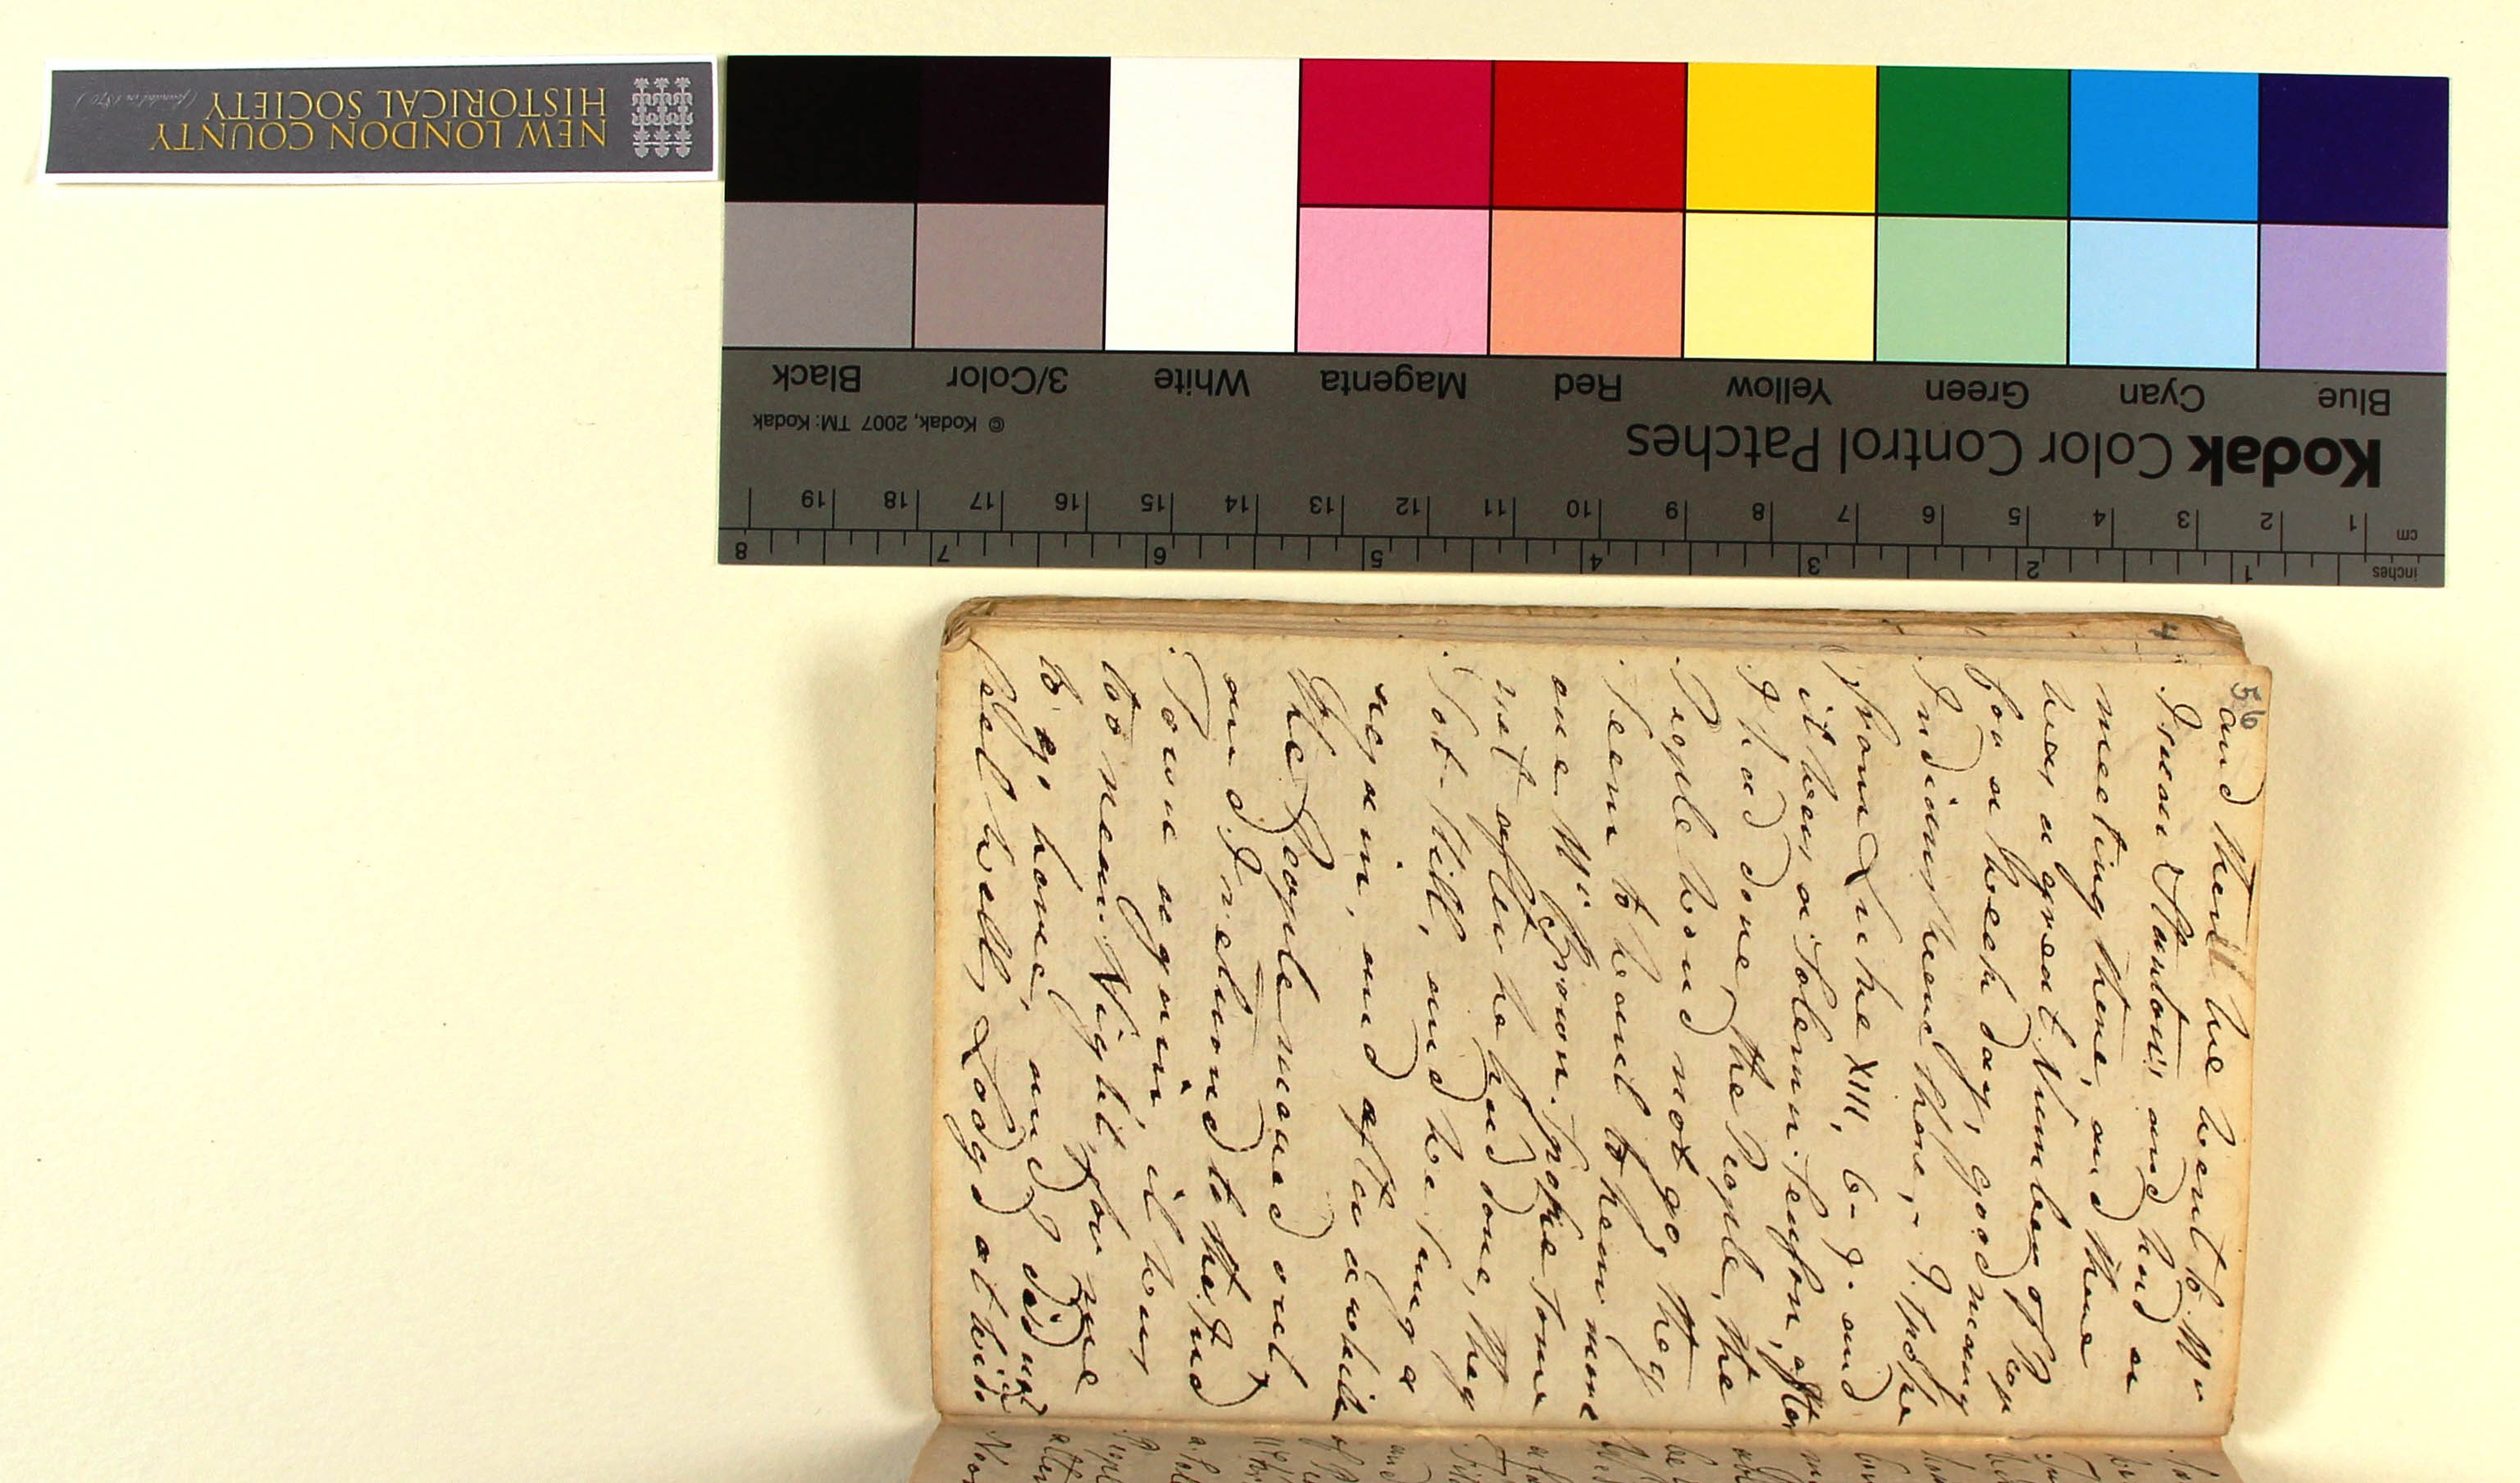 56
and then we went to Mr
Isaac Stantons and had a
meeting there, and there
was a great Number of Peop
for a week day, good many
Indians were there, I Spoke
from Luke XIII, 6-9. and
it was a Solemn Season, after
I had done, the People, the
People woud not go, they
Seem to want to hear more
one Mr Brown Spoke Some
net after he had done, they
Sot Still, and we Sung a
again, and after a while
the People moved out
and I reclined to the Fud
Towe again, it was
too near Night for me
to go home, and I did not
feel well, Lodgd at wido
NEW LONDON COUNTY
HISTORICAL SOCIETY
(founded in 1870)
Blue Cyan Green Yellow Red Magenta White 3/Color Black
Kodak Color Control Patches
© Kodak, 2007 TM: Kodak
cm 1 2 3 4 5 6 7 8 9 10 11 12 13 14 15 16 17 18 19
inches 1 2 3 4 5 6 7 8